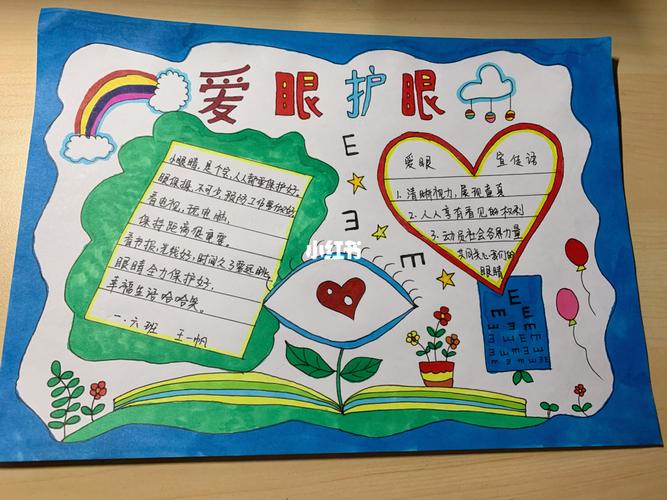 爱眼护眼
小眼睛,是个宝,人人都要保护好。
眼保操,不可少,预防工作要做好
看电视,玩电脑,
保持距离很重要。
看书报,光线好,时间久了要远眺,
眼睛全力保护好,
幸福生活哈哈笑。
一.六班 王一帆
E
E
E
小红书
爱眼 宣传语
1. 清晰视力,展现童真
2. 人人享有看见的权利
3. 动员社会各界力量
共同关心我们的
眼睛
E